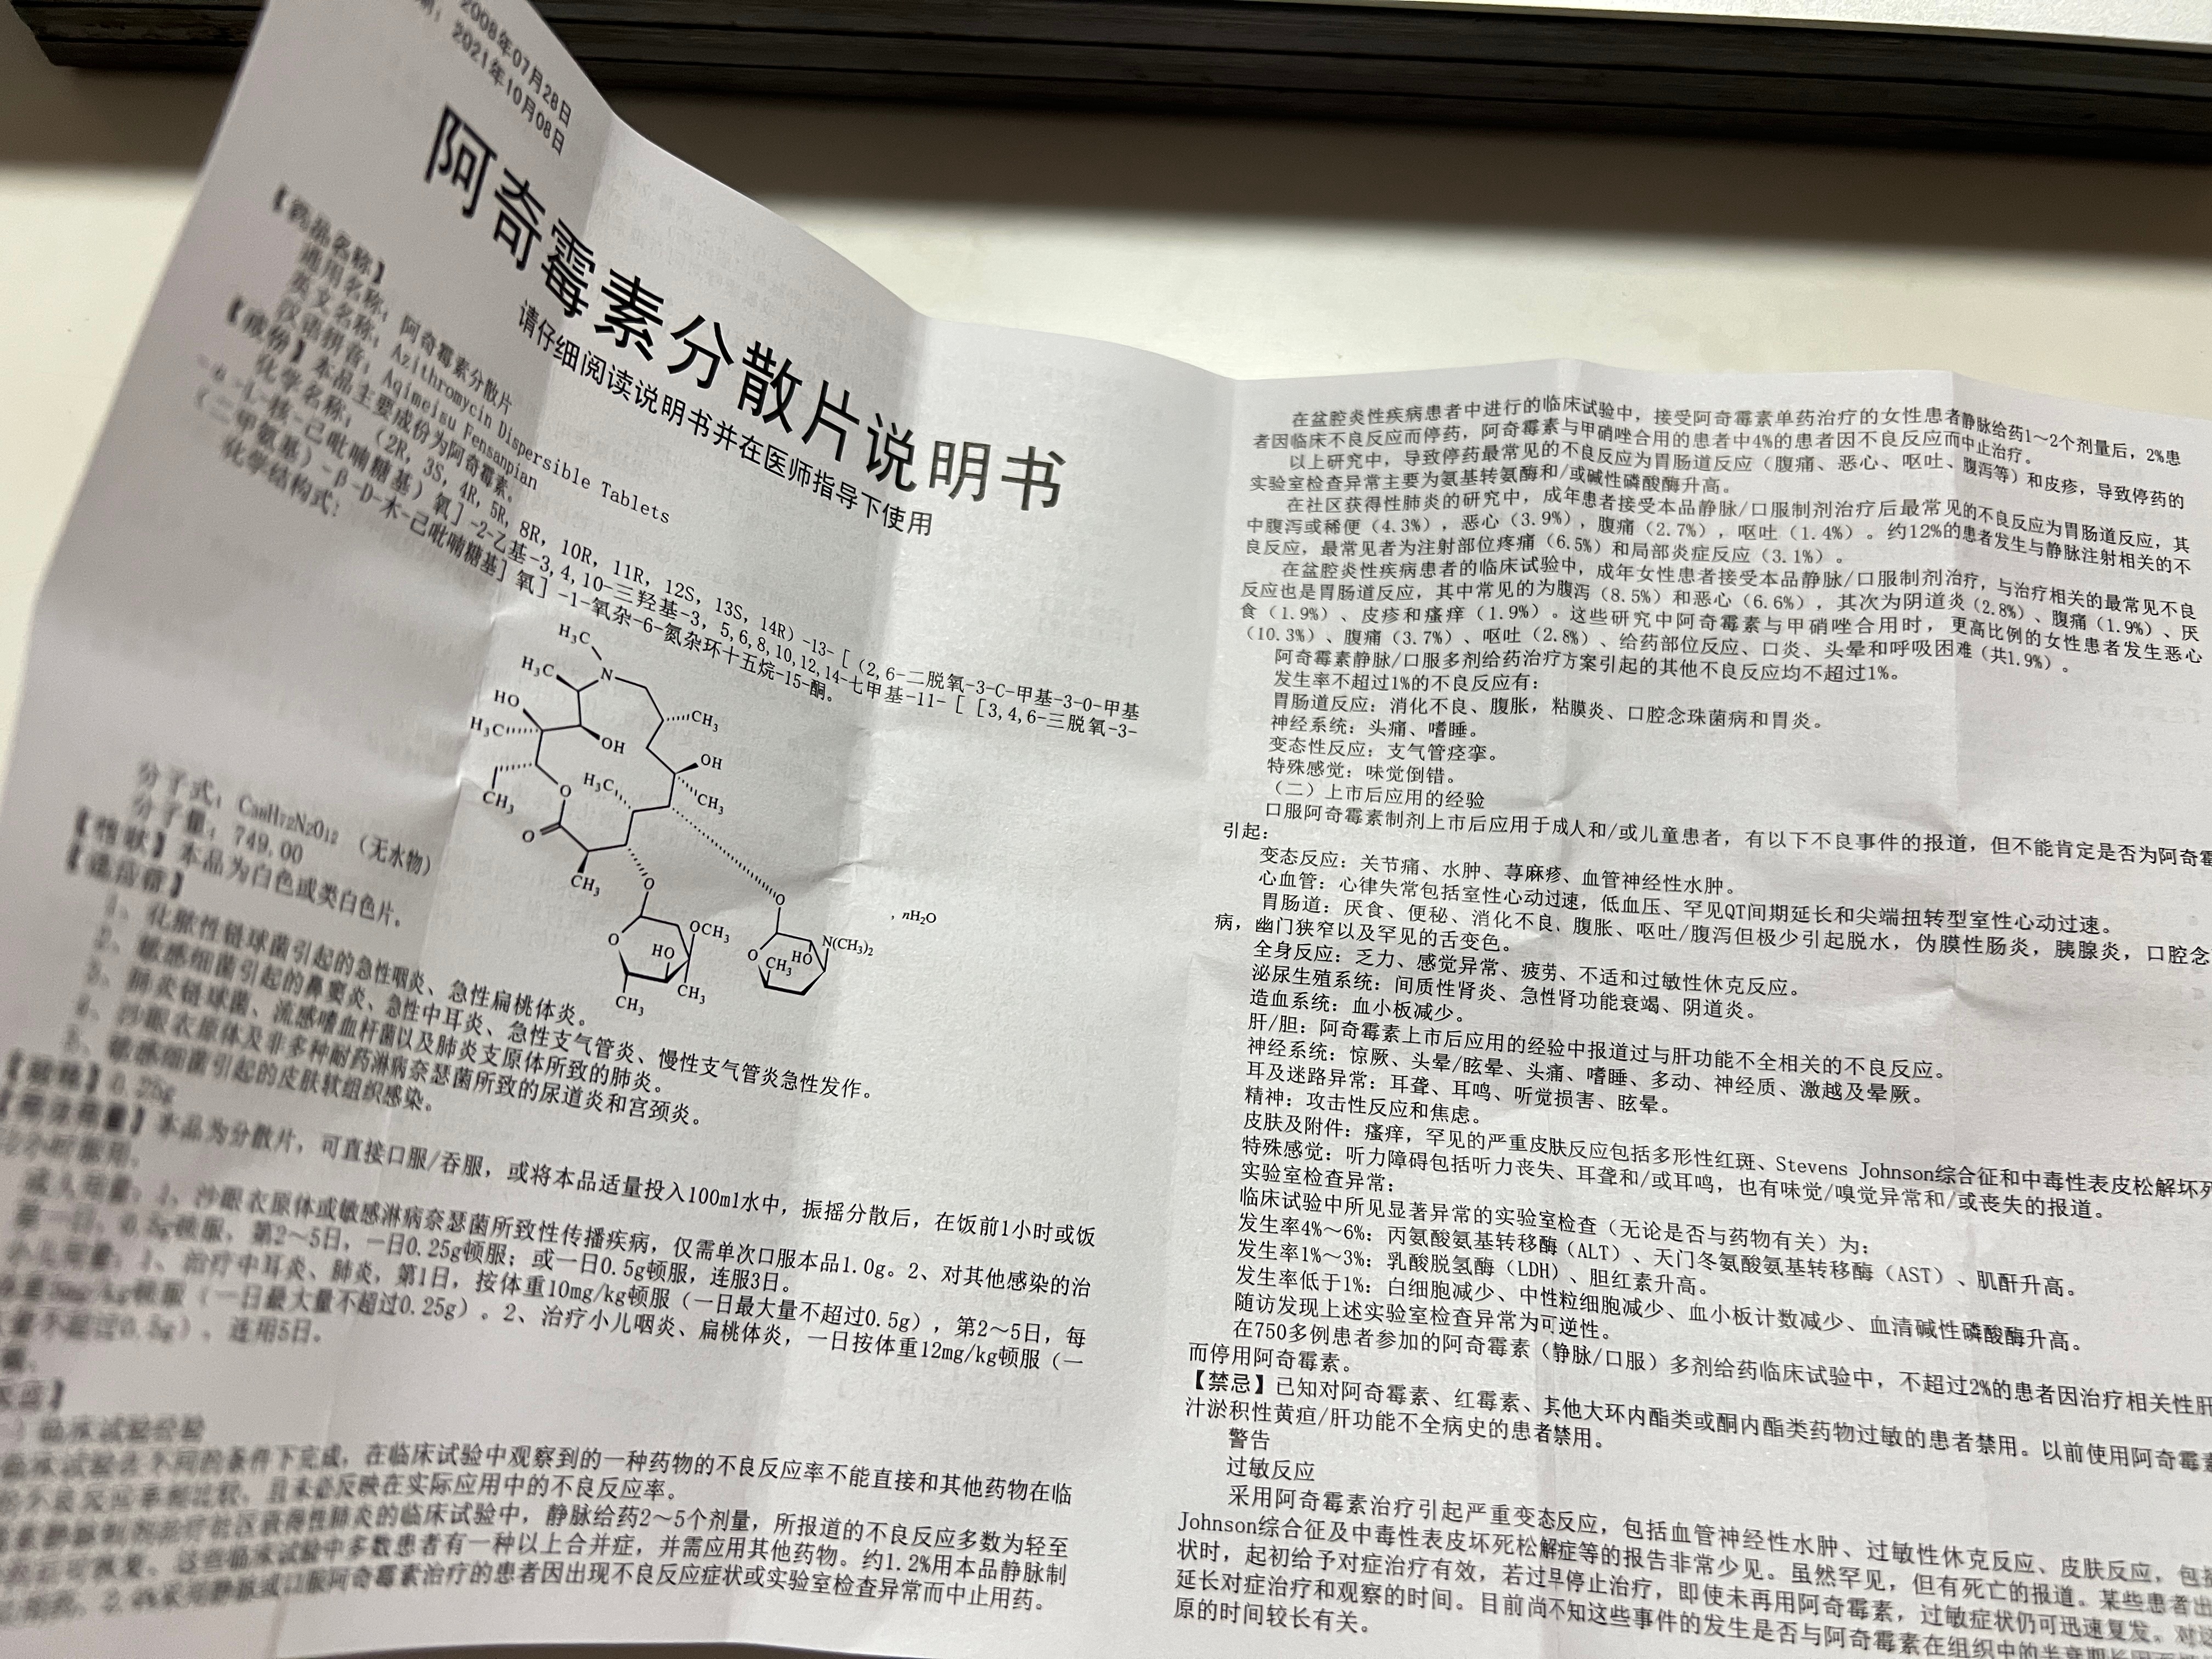 2008年07月28日
2021年10月08日
阿奇霉素分散片说明书
请仔细阅读说明书并在医师指导下使用
【药品名称】
通用名称：阿奇霉素分散片
英文名称：Azithromycin Dispersible Tablets
汉语拼音：Aqimeisu Fensanpian
【成份】本品主要成份为阿奇霉素。
化学名称：（2R, 3S, 4R, 5R, 8R, 10R, 11R, 12S, 13S, 14R）-13-［（2,6-二脱氧-3-C-甲基-3-O-甲基
-α-L-核-己吡喃糖基）氧］-2-乙基-3,4,10-三羟基-3, 5,6,8,10,12,14-七甲基-11-［［3,4,6-三脱氧-3-
（二甲氨基）-β-D-木-己吡喃糖基］氧］-1-氧杂-6-氮杂环十五烷-15-酮。
化学结构式：
H3C
N
H3C
CH3
HO
H3C
OH
OH
H3C
CH3
CH3
O
O
CH3
O
O
, nH2O
OCH3
O
HO
CH3
CH3
N(CH3)2
HO
O
CH3
分子式：C38H72N2O12 （无水物）
分子量：749.00
【性状】本品为白色或类白色片。
【适应症】
1、化脓性链球菌引起的急性咽炎、急性扁桃体炎。
2、敏感细菌引起的鼻窦炎、急性中耳炎、急性支气管炎、慢性支气管炎急性发作。
3、肺炎链球菌、流感嗜血杆菌以及肺炎支原体所致的肺炎。
4、沙眼衣原体及非多种耐药淋病奈瑟菌所致的尿道炎和宫颈炎。
5、敏感细菌引起的皮肤软组织感染。
【规格】0.25g
【用法用量】本品为分散片，可直接口服/吞服，或将本品适量投入100ml水中，振摇分散后，在饭前1小时或饭
2小时服用。
成人用量：1、沙眼衣原体或敏感淋病奈瑟菌所致性传播疾病，仅需单次口服本品1.0g。2、对其他感染的治
第一日，0.5g顿服，第2～5日，一日0.25g顿服；或一日0.5g顿服，连服3日。
小儿用量：1、治疗中耳炎、肺炎，第1日，按体重10mg/kg顿服（一日最大量不超过0.5g），第2～5日，每
体重5mg/kg顿服（一日最大量不超过0.25g）。2、治疗小儿咽炎、扁桃体炎，一日按体重12mg/kg顿服（一
量不超过0.5g），连用5日。
临床试验经验
临床试验在不同的条件下完成，在临床试验中观察到的一种药物的不良反应率不能直接和其他药物在临
不良反应率相比较，且未必反映在实际应用中的不良反应率。
社区获得性肺炎的临床试验中，静脉给药2～5个剂量，所报道的不良反应多数为轻至
可恢复。这些临床试验中多数患者有一种以上合并症，并需应用其他药物。约1.2%用本品静脉制
静脉或口服阿奇霉素治疗的患者因出现不良反应症状或实验室检查异常而中止用药。
在盆腔炎性疾病患者中进行的临床试验中，接受阿奇霉素单药治疗的女性患者静脉给药1～2个剂量后，2%患
者因临床不良反应而停药，阿奇霉素与甲硝唑合用的患者中4%的患者因不良反应而中止治疗。
以上研究中，导致停药最常见的不良反应为胃肠道反应（腹痛、恶心、呕吐、腹泻等）和皮疹，导致停药的
实验室检查异常主要为氨基转氨酶和/或碱性磷酸酶升高。
在社区获得性肺炎的研究中，成年患者接受本品静脉/口服制剂治疗后最常见的不良反应为胃肠道反应，其
中腹泻或稀便（4.3%），恶心（3.9%），腹痛（2.7%），呕吐（1.4%）。约12%的患者发生与静脉注射相关的不
良反应，最常见者为注射部位疼痛（6.5%）和局部炎症反应（3.1%）。
在盆腔炎性疾病患者的临床试验中，成年女性患者接受本品静脉/口服制剂治疗，与治疗相关的最常见不良
反应也是胃肠道反应，其中常见的为腹泻（8.5%）和恶心（6.6%），其次为阴道炎（2.8%）、腹痛（1.9%）、厌
食（1.9%）、皮疹和瘙痒（1.9%）。这些研究中阿奇霉素与甲硝唑合用时，更高比例的女性患者发生恶心
（10.3%）、腹痛（3.7%）、呕吐（2.8%）、给药部位反应、口炎、头晕和呼吸困难（共1.9%）。
阿奇霉素静脉/口服多剂给药治疗方案引起的其他不良反应均不超过1%。
发生率不超过1%的不良反应有：
胃肠道反应：消化不良、腹胀，粘膜炎、口腔念珠菌病和胃炎。
神经系统：头痛、嗜睡。
变态性反应：支气管痉挛。
特殊感觉：味觉倒错。
（二）上市后应用的经验
口服阿奇霉素制剂上市后应用于成人和/或儿童患者，有以下不良事件的报道，但不能肯定是否为阿奇霉
引起：
变态反应：关节痛、水肿、荨麻疹、血管神经性水肿。
心血管：心律失常包括室性心动过速，低血压、罕见QT间期延长和尖端扭转型室性心动过速。
胃肠道：厌食、便秘、消化不良、腹胀、呕吐/腹泻但极少引起脱水，伪膜性肠炎，胰腺炎，口腔念
病，幽门狭窄以及罕见的舌变色。
全身反应：乏力、感觉异常、疲劳、不适和过敏性休克反应。
泌尿生殖系统：间质性肾炎、急性肾功能衰竭、阴道炎。
造血系统：血小板减少。
肝/胆：阿奇霉素上市后应用的经验中报道过与肝功能不全相关的不良反应。
神经系统：惊厥、头晕/眩晕、头痛、嗜睡、多动、神经质、激越及晕厥。
耳及迷路异常：耳聋、耳鸣、听觉损害、眩晕。
精神：攻击性反应和焦虑。
皮肤及附件：瘙痒，罕见的严重皮肤反应包括多形性红斑、Stevens Johnson综合征和中毒性表皮松解坏死
特殊感觉：听力障碍包括听力丧失、耳聋和/或耳鸣，也有味觉/嗅觉异常和/或丧失的报道。
实验室检查异常：
临床试验中所见显著异常的实验室检查（无论是否与药物有关）为：
发生率4%～6%：丙氨酸氨基转移酶（ALT）、天门冬氨酸氨基转移酶（AST）、肌酐升高。
发生率1%～3%：乳酸脱氢酶（LDH）、胆红素升高。
发生率低于1%：白细胞减少、中性粒细胞减少、血小板计数减少、血清碱性磷酸酶升高。
随访发现上述实验室检查异常为可逆性。
在750多例患者参加的阿奇霉素（静脉/口服）多剂给药临床试验中，不超过2%的患者因治疗相关性肝
而停用阿奇霉素。
【禁忌】已知对阿奇霉素、红霉素、其他大环内酯类或酮内酯类药物过敏的患者禁用。以前使用阿奇霉素
汁淤积性黄疸/肝功能不全病史的患者禁用。
警告
过敏反应
采用阿奇霉素治疗引起严重变态反应，包括血管神经性水肿、过敏性休克反应、皮肤反应，包括
Johnson综合征及中毒性表皮坏死松解症等的报告非常少见。虽然罕见，但有死亡的报道。某些患者出
状时，起初给予对症治疗有效，若过早停止治疗，即使未再用阿奇霉素，过敏症状仍可迅速复发。对这
延长对症治疗和观察的时间。目前尚不知这些事件的发生是否与阿奇霉素在组织中的半衰期长
原的时间较长有关。